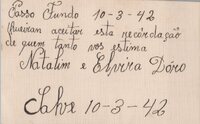 Passo Fundo 10-3-42
Queiram aceitar esta recordação
de quem tanto vos estima
Natalim e Elvira Dóro
Salve 10-3-42